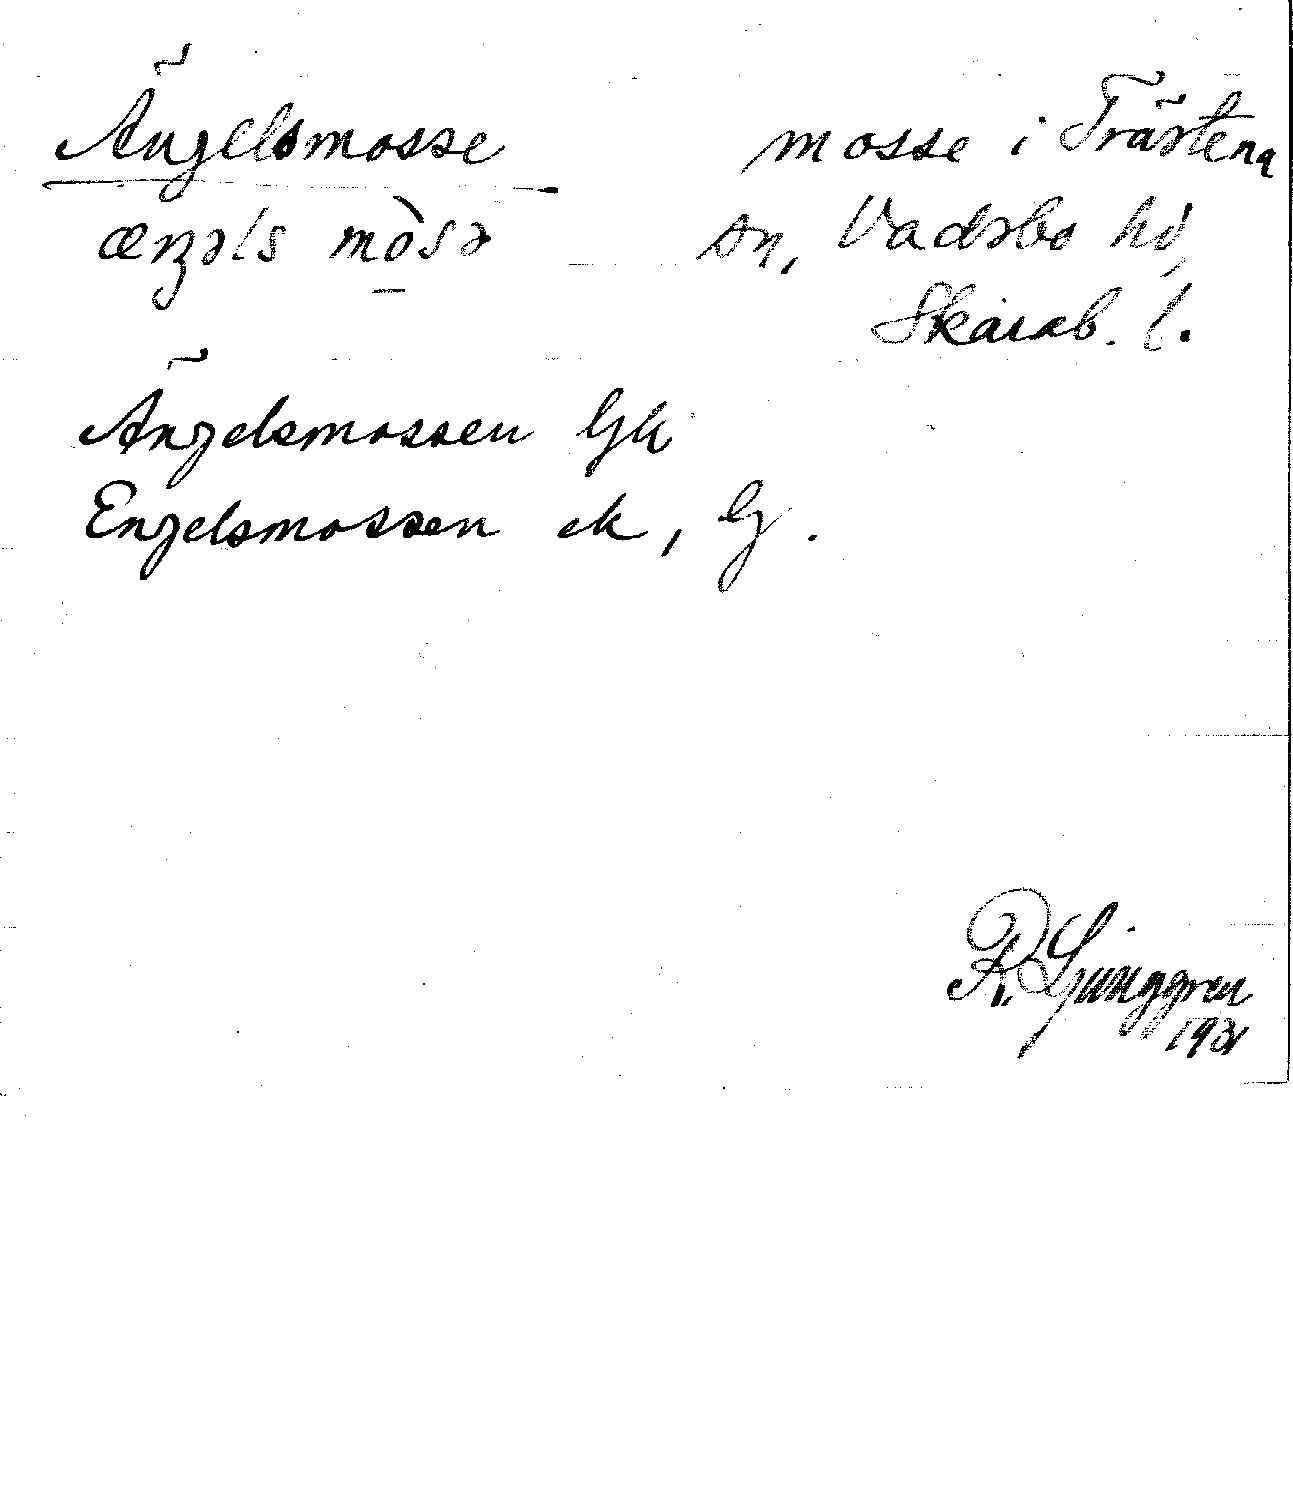 Ängelsmosse
mosse i Trästena
sn, Vadsbo hd,
Skarab. l.
Ängelsmossen Gk
Engelsmossen ek, G.
R. Ljunggren
1931